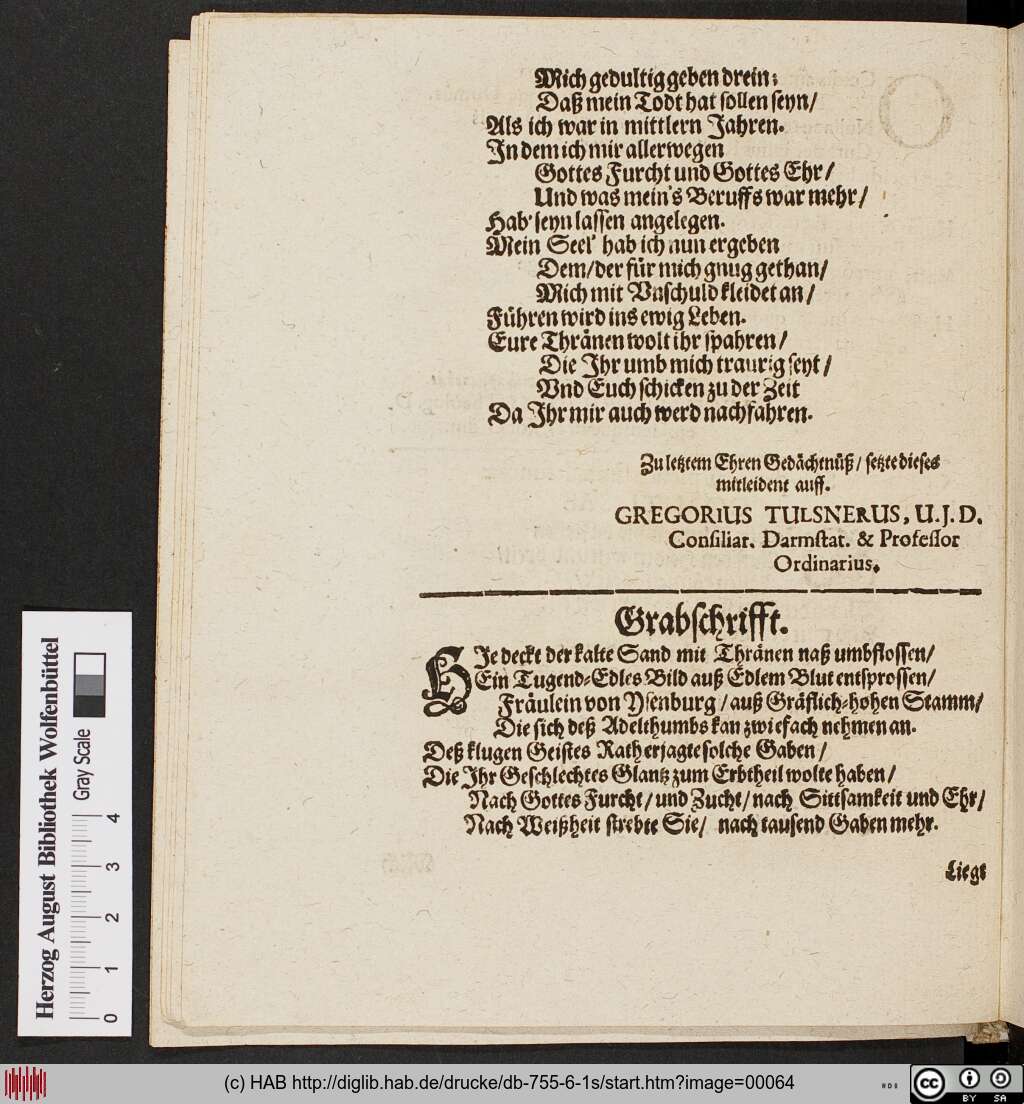 Mich gedultig geben drein:
Daß mein Todt hat sollen seyn/
Als ich war in mittlern Jahren.
In dem ich mir allerwegen
Gottes Furcht und Gottes Ehr/
Und was mein's Beruffs war mehr/
Hab' seyn lassen angelegen.
Mein Seel' hab ich nun ergeben
Dem/der für mich gnug gethan/
Mich mit Vnschuld kleidet an/
Führen wird ins ewig Leben.
Eure Thränen wolt ihr spahren/
Die Ihr umb mich traurig seyt/
Vnd Euch schicken zu der Zeit
Da Ihr mir auch werd nachfahren.
Zu letztem Ehren Gedächtnüß/ setzte dieses
mitleident auff.
GREGORIUS TULSNERUS, U.J.D.
Consiliar. Darmstat. & Professor
Ordinarius.
Grabschrifft.
HIe deckt der kalte Sand mit Thränen naß umbflossen/
Ein Tugend-Edles Bild auß Edlem Blut entsprossen/
Fräulein von Ysenburg/auß Gräflich-hohen Stamm/
Die sich deß Adelthumbs kan zwiefach nehmen an.
Deß klugen Geistes Rath erjagte solche Gaben/
Die Ihr Geschlechtes Glantz zum Erbtheil wolte haben/
Nach Gottes Furcht/und Zucht/nach Sittsamkeit und Ehr/
Nach Weißheit strebte Sie/ nach tausend Gaben mehr.
Liegt
Herzog August Bibliothek Wolfenbüttel
Gray Scale
0 1 2 3 4
(c) HAB http://diglib.hab.de/drucke/db-755-6-1s/start.htm?image=00064
cc BY SA